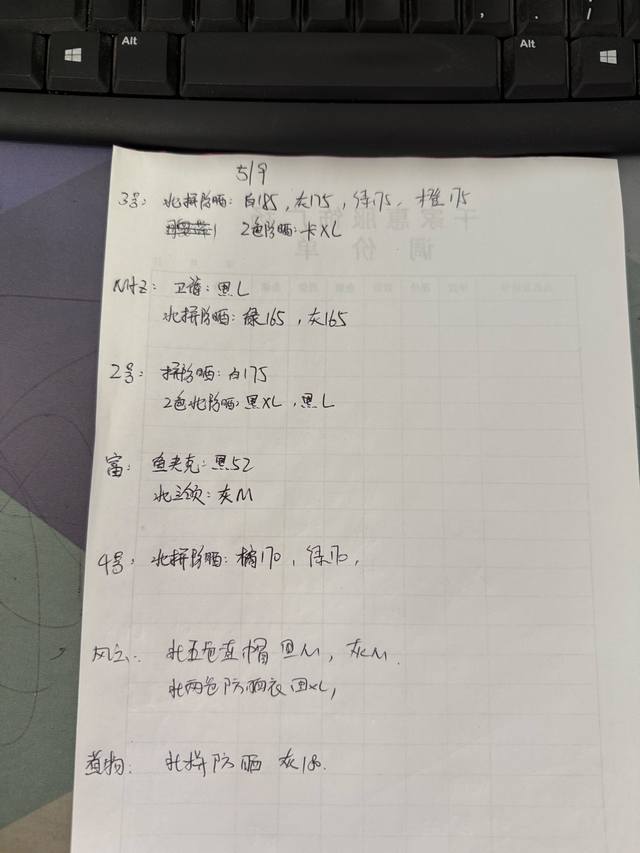 5/9
3号: 北拼防晒: 白185, 灰175, 绿175, 橙175
2色防晒: 卡XL
黑L
北拼防晒: 绿165, 灰165
2号: 拼防晒: 白175
2色北防晒: 黑XL, 黑L
富: 鱼夹克: 黑52
北立领: 灰M
4号: 北拼防晒: 橘170, 绿170,
北五色连帽 黑M, 灰M.
北两色防晒衣 黑XL,
北拼防晒 灰180.
千家惠服饰
调价单